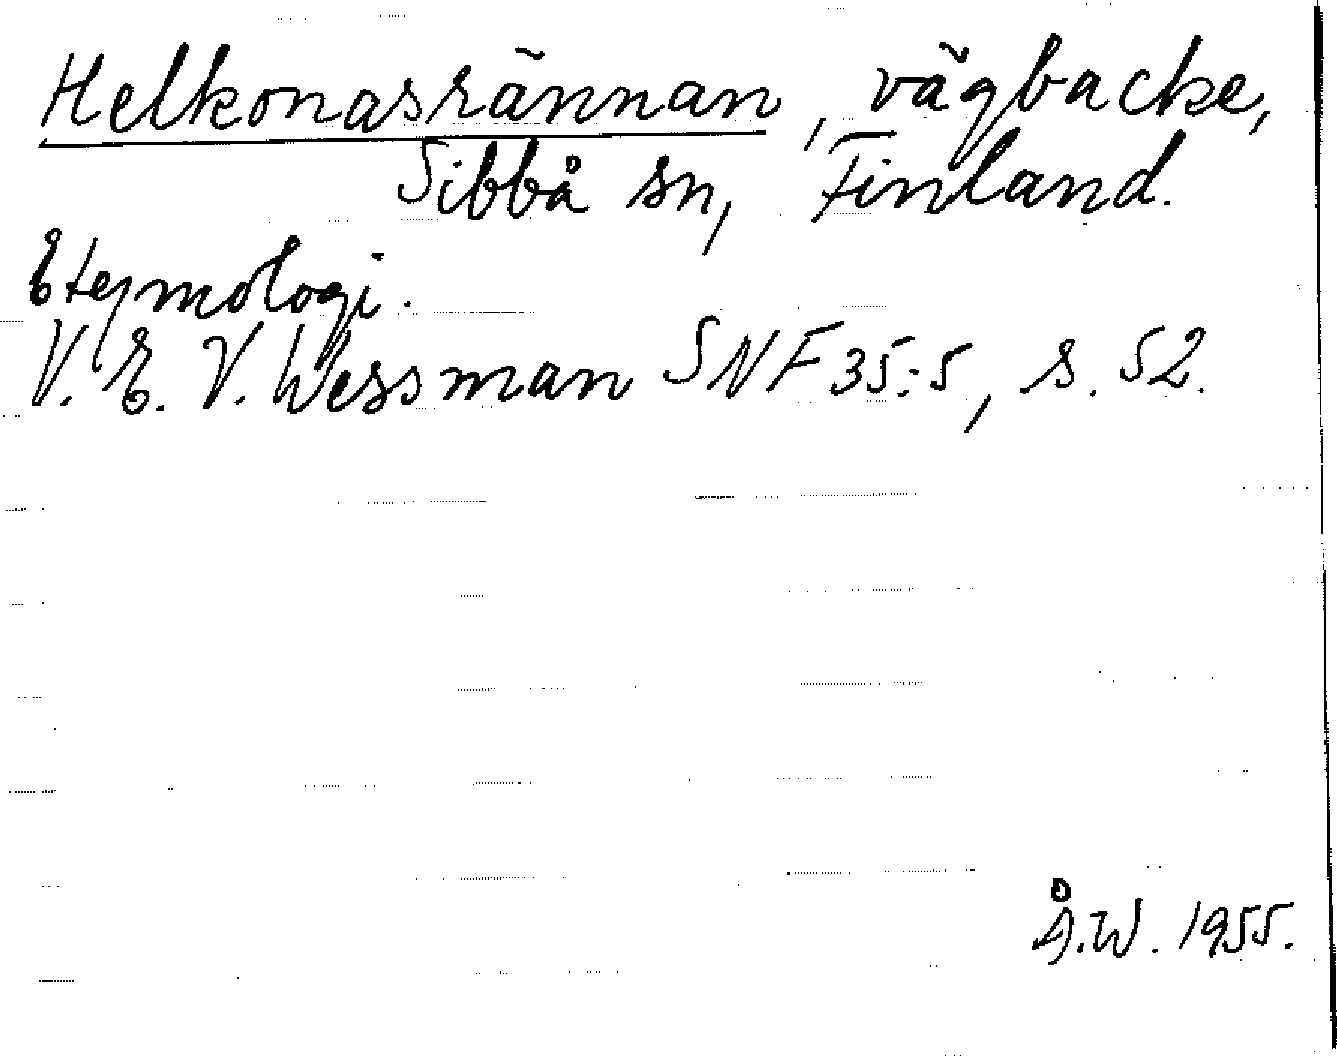 Helkonasrännan, vägbacke,
Sibbå sn, Finland.
Etymologi.
V. E. V. Wessman SNF 35:5, s. 52.
Å.W. 1955.